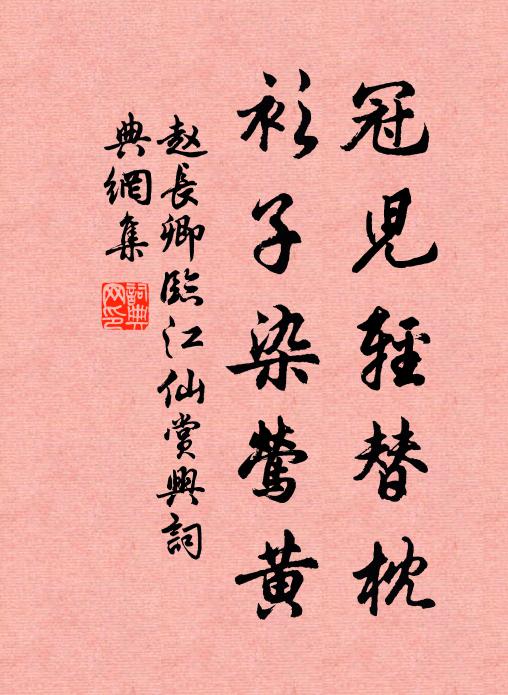 冠兒輕替枕
衫子染鶯黃
赵長卿臨江仙賞興詞
典網集
詞典网印